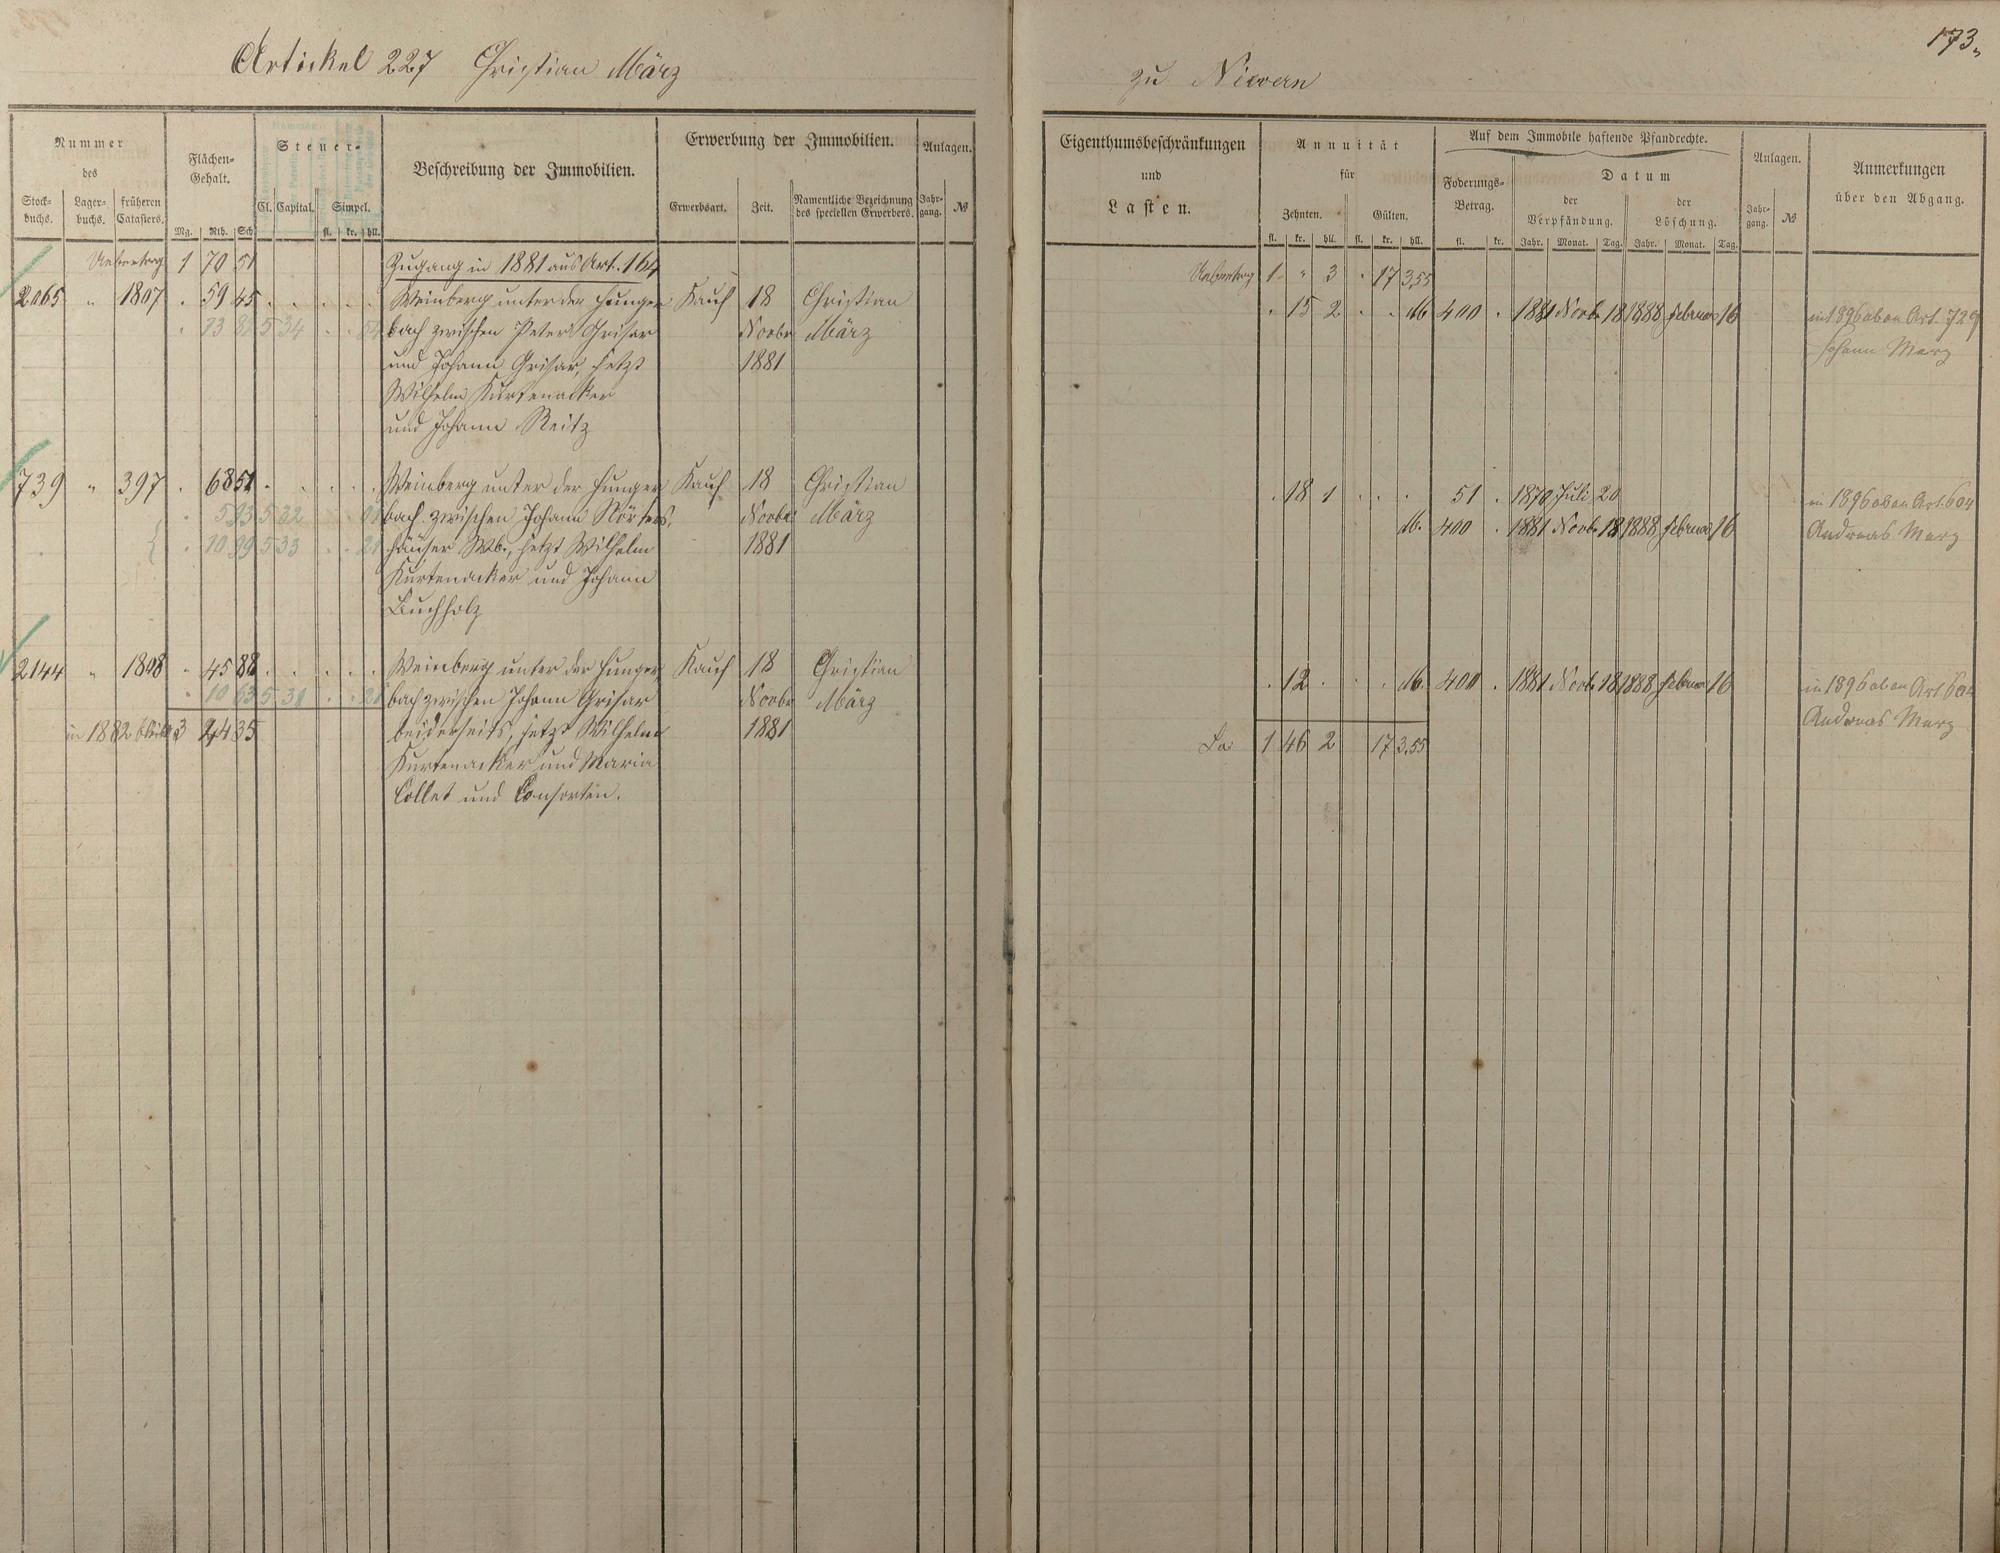 173.
Artickel 227 Christian März
zu Nievern
Nummer
des
Stock-
buchs.
Lager-
buchs.
früheren
Catasters.
Flächen-
Gehalt.
Mg. Rth. Sch.
Steuer-
Cl. Capital. Simpel.
fl. kr. hll.
Beschreibung der Immobilien.
Erwerbung der Immobilien.
Erwerbsart. Zeit.
Namentliche Bezeichnung
des speciellen Erwerbers.
Anlagen.
Jahr-
gang. №
Eigenthumsbeschränkungen
und
Lasten.
Annuität
für
Zehnten. Gülten.
fl. kr. hll. fl. kr. hll.
Auf dem Immobile haftende Pfandrechte.
Foderungs-
Betrag.
fl. kr.
Datum
der
Verpfändung.
der
Löschung.
Jahr. Monat. Tag. Jahr. Monat. Tag.
Anlagen.
Jahr-
gang. №
Anmerkungen
über den Abgang.
Uebertrag 1 70 51 Zugang in 1881 aus Art. 164
2065 " 1807 . 59 45 Weinberg unter der Hunger Kauf 18 Christian
5 34 bach zwischen Peter Grisar Novbr März
und Johann Grisar, jetzt 1881
Wilhelm Kurtenacker
und Johann Reitz
739 " 397 . 68 51 Weinberg unter der Hunger Kauf 18 Christian
5 93 5 32 bach zwischen Johann Novbr März
10 99 5 33 häuser Wb., jetzt Wilhelm 1881
Kurtenacker und Johann
Buchholz
2144 " 1808 . 45 88 Weinberg unter der Hunger Kauf 18 Christian
10 63 5 31 bach zwischen Johann Grisar Novbr März
in 1882 3 44 35 beiderseits, jetzt Wilhelm 1881
Kurtenacker und Maria
Collet und Consorten.
Uebertrag 1 " 3 . 17 3,55
. 15 2 . . M. 400 . 1881 Novb. 18 1888 Februar 16 in 1896 ab an Art. 729
Johann Marz
. 18 1 . . . 51 . 1879 Juli 20 in 1896 ab an Art. 604
M. 400 . 1881 Novb. 18 1888 Februar 16 Andreas Marz
. 12 . . . M. 400 . 1881 Novb. 18 1888 Februar 16 in 1896 ab an Art. 604
Andreas Marz
1 46 2 17 3,55